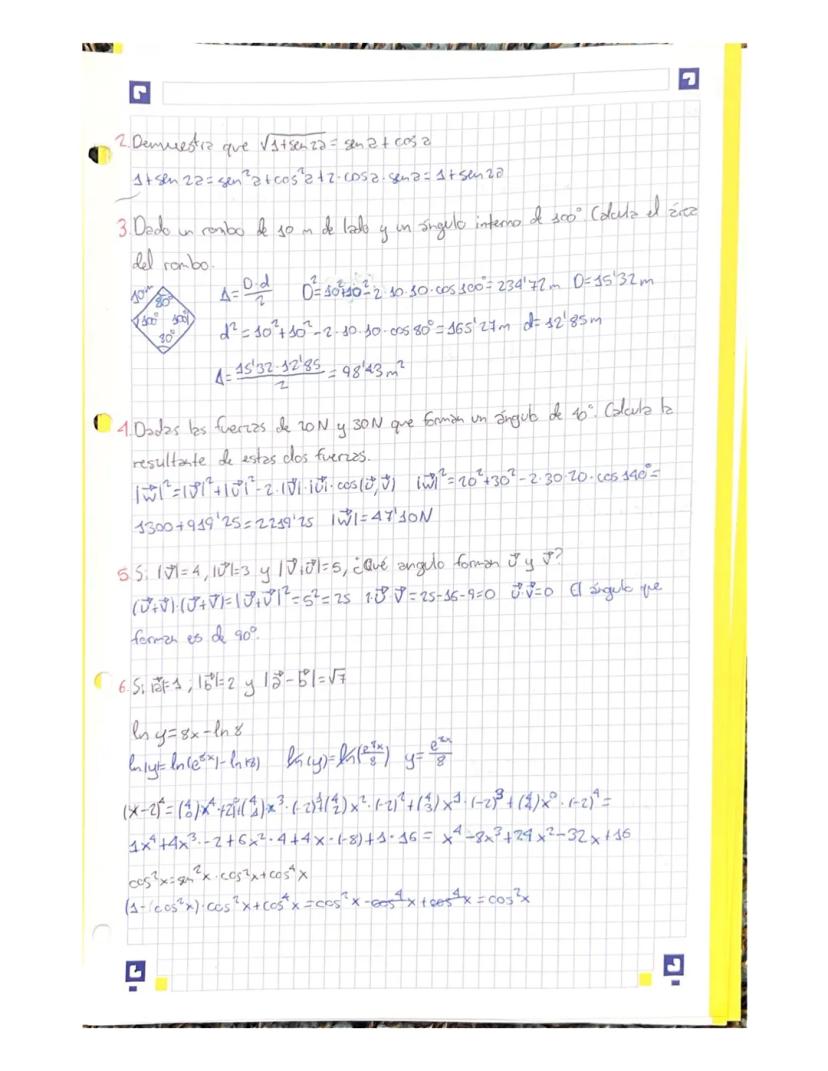 2. Demuestra que √1+sen 2a = sen a + cos a
1+sen 2a = sen²a + cos²a + 2·cos a·sen a = 1+sen 2a
3. Dado un rombo de 10 m de lado y un ángulo interno de 100° Calcula el área
del rombo.
10m 80° 100° 100° 80°
A = D·d/2 D² = 10²+10²-2·10·10·cos 100° = 234'72m D = 15'32m
d² = 10²+10²-2·10·10·cos 80° = 165'27m d = 12'85m
A = 15'32·12'85/2 = 98'43 m²
4. Dadas las fuerzas de 20N y 30N que forman un ángulo de 40°. Calcula la
resultante de estas dos fuerzas.
|w⃗|² = |v⃗|²+|u⃗|²-2·|v⃗|·|u⃗|·cos(u⃗,v⃗) |w⃗|² = 20²+30²-2·30·20·cos 140° =
1300+919'25 = 2219'25 |w⃗| = 47'10N
5. Si |v⃗|=4, |u⃗|=3 y |v⃗+u⃗|=5, ¿Qué angulo forman u⃗ y v⃗?
(u⃗+v⃗)·(u⃗+v⃗) = |u⃗+v⃗|² = 5² = 25 2·u⃗·v⃗ = 25-16-9 = 0 u⃗·v⃗ = 0 El ángulo que
forman es de 90°.
6. Si |a⃗|=1; |b⃗|=2 y |a⃗-b⃗|=√7
ln y = 8x - ln 8
ln(y) = ln(e⁸ˣ) - ln(8) ln(y) = ln(e⁸ˣ/8) y = e⁸ˣ/8
1x⁴+4x³·-2+6x²·4+4x·(-8)+1·16 = x⁴-8x³+24x²-32x+16
cos²x = sen²x·cos²x+cos⁴x
(1-cos²x)·cos²x+cos⁴x = cos²x-cos⁴x+cos⁴x = cos²x